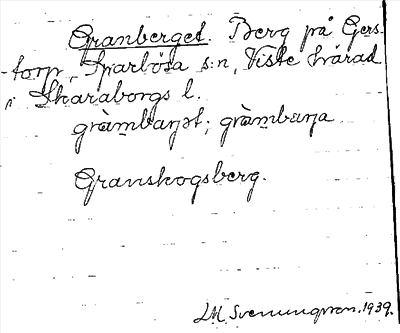 Granberget. Berg på Gers-
torp, Sparlösa s:n, Viste härad
i Skaraborgs l.
gràmbaŋət; gràmbaŋa
Granskogsberg.
J.M. Svenungsson. 1939.